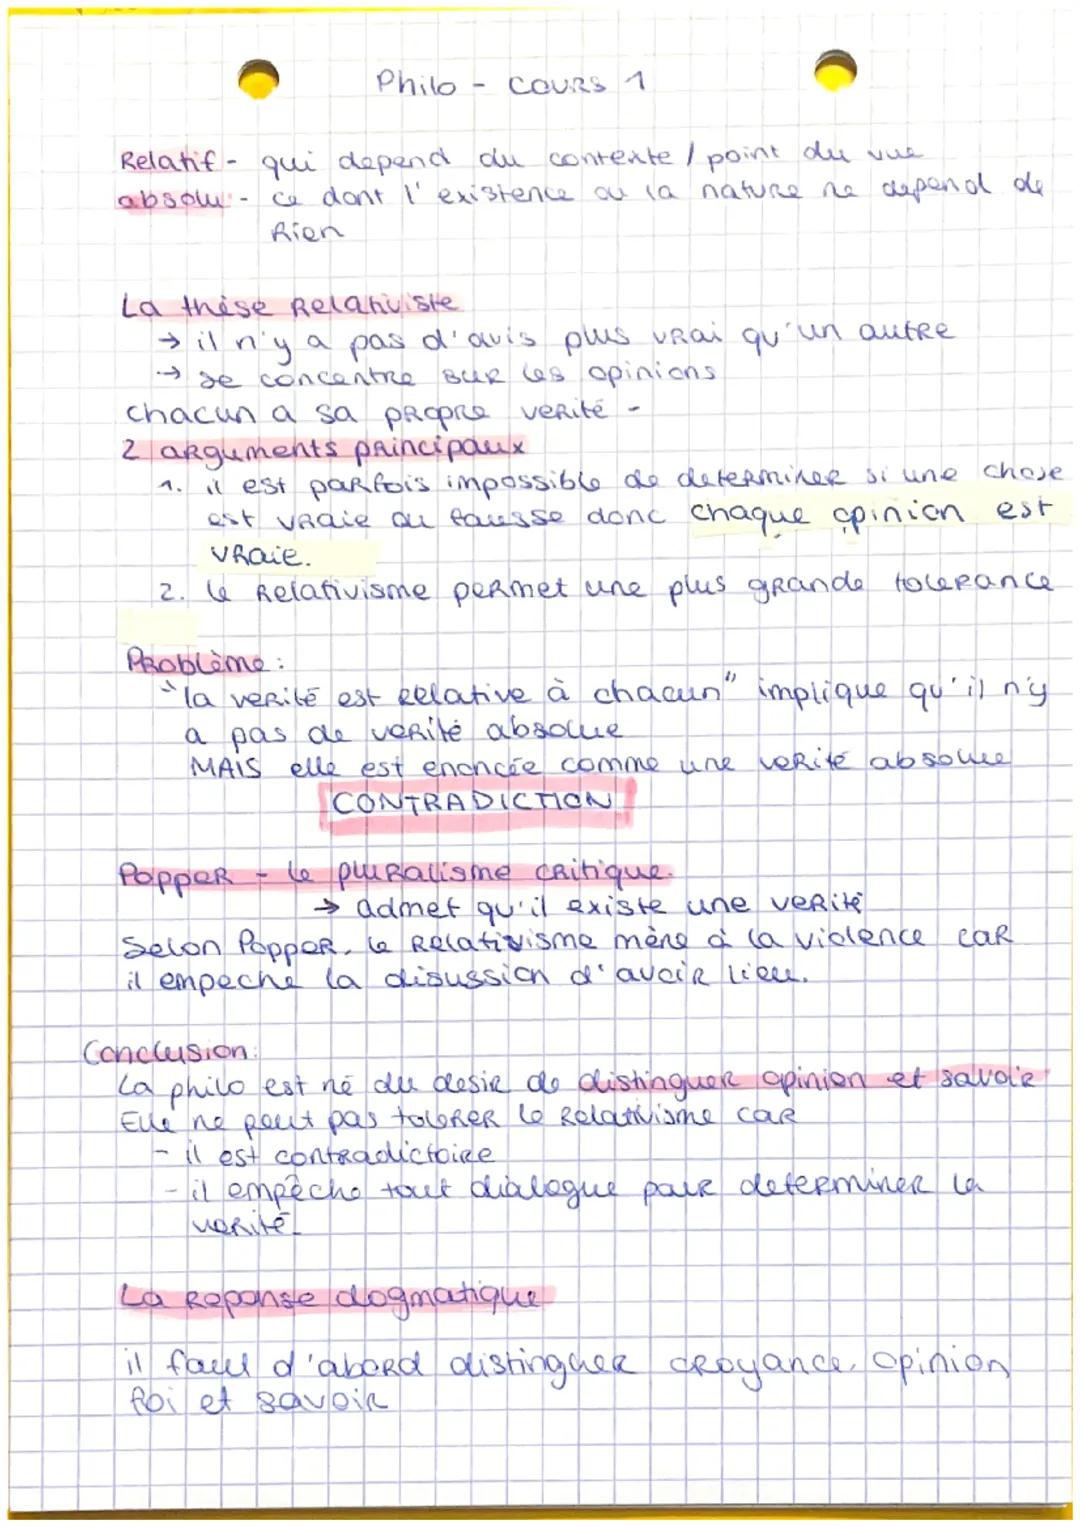 Philo - COURS 1
Relatif - qui depend du contexte / point du vue
absolu - ce dont l'existence ou la nature ne depend de
Rien
La thèse Relativiste
→ il n'y a pas d'avis plus vrai qu'un autre
→ se concentre sur les opinions
chacun a sa propre verité -
2 arguments principaux
1. il est parfois impossible de determiner si une chose
est vraie ou fausse donc chaque opinion est
vraie.
2. le Relativisme permet une plus grande tolerance
Problème :
"la verité est relative à chacun" implique qu'il n'y
a pas de verité absolue
MAIS elle est enoncée comme une verité absolue
CONTRADICTION
Popper - le pluralisme critique.
→ admet qu'il existe une verité
Selon Popper, le Relativisme mène à la violence car
il empeche la disussion d'avoir lieu.
Conclusion:
La philo est né du desir de distinguer opinion et savoir
Elle ne peut pas tolerer le Relativisme car
- il est contradictoire
- il empêche tout dialogue pour determiner la
verité.
La Reponse dogmatique
il faut d'abord distinguer croyance, opinion,
foi et savoir